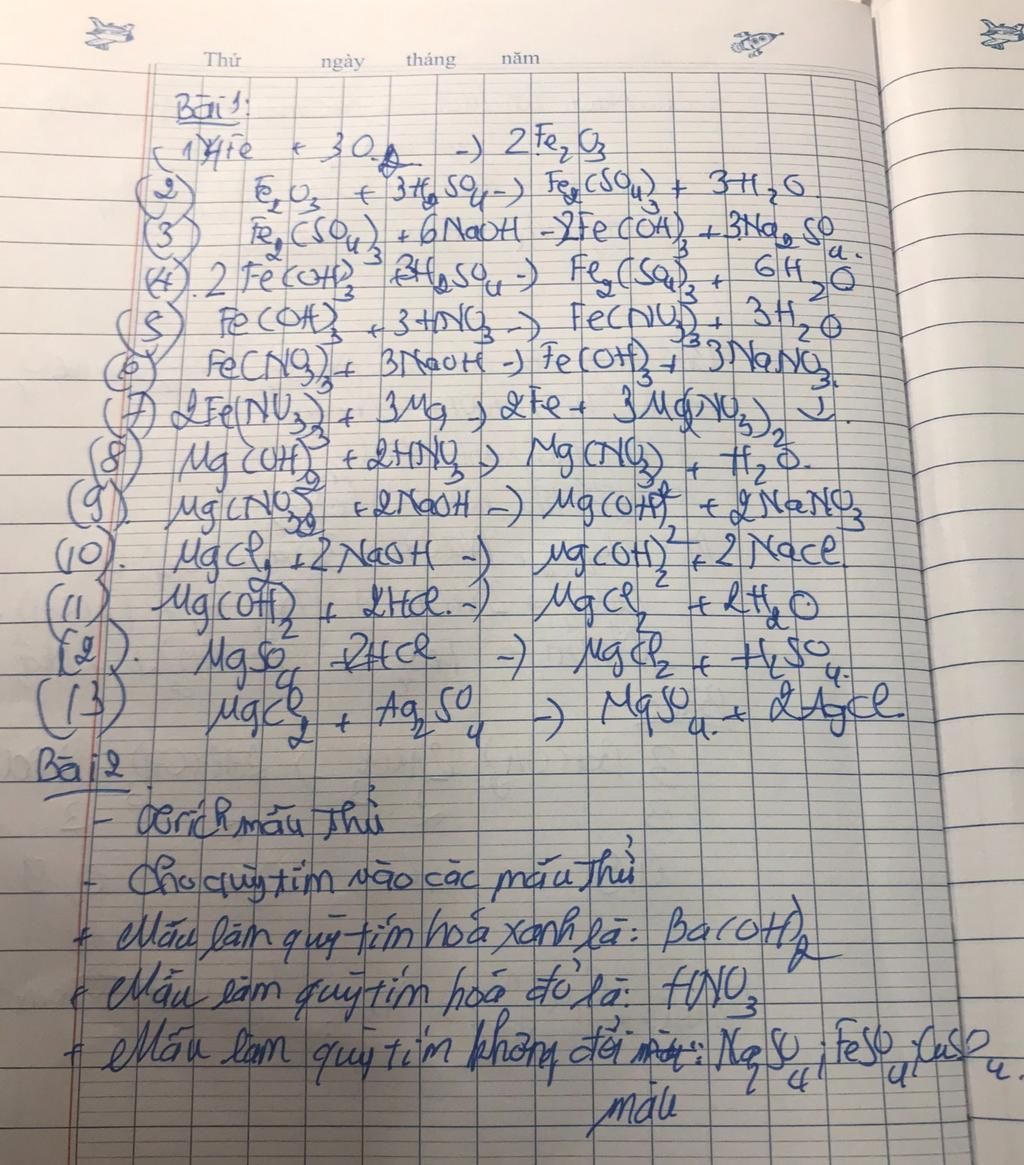 Thứ ngày tháng năm
Bài 1:
(1) 4Fe + 3O2 -> 2Fe2O3
(2) Fe2O3 + 3H2SO4 -> Fe2(SO4)3 + 3H2O
(3) Fe2(SO4)3 + 6NaOH -> 2Fe(OH)3 + 3Na2SO4.
(4). 2Fe(OH)3 + 3H2SO4 -> Fe2(SO4)3 + 6H2O
(5) Fe(OH)3 + 3HNO3 -> Fe(NO3)3 + 3H2O
(6) Fe(NO3)3 + 3NaOH -> Fe(OH)3 + 3NaNO3.
(7) 2Fe(NO3)3 + 3Mg -> 2Fe + 3Mg(NO3)2 ↓.
(8) Mg(OH)2 + 2HNO3 -> Mg(NO3) + H2O.
(9). Mg(NO3)2 + 2NaOH -> Mg(OH)2 + 2NaNO3
(10). MgCl2 + 2NaOH -> Mg(OH)2 + 2NaCl
(11) Mg(OH)2 + 2HCl -> MgCl2 + 2H2O
12). MgSO4 + 2HCl -> MgCl2 + H2SO4.
(13) MgCl2 + Ag2SO4 -> MgSO4 + 2AgCl.
Bài 2
- trích mẫu thử
- Cho quỳ tím vào các mẫu thử
+ Mẫu làm quỳ tím hoá xanh là: Ba(OH)2
+ Mẫu làm quỳ tím hoá đỏ là: HNO3
+ Mẫu làm quỳ tím không đổi màu: Na2SO4; FeSO4; CuSO4.